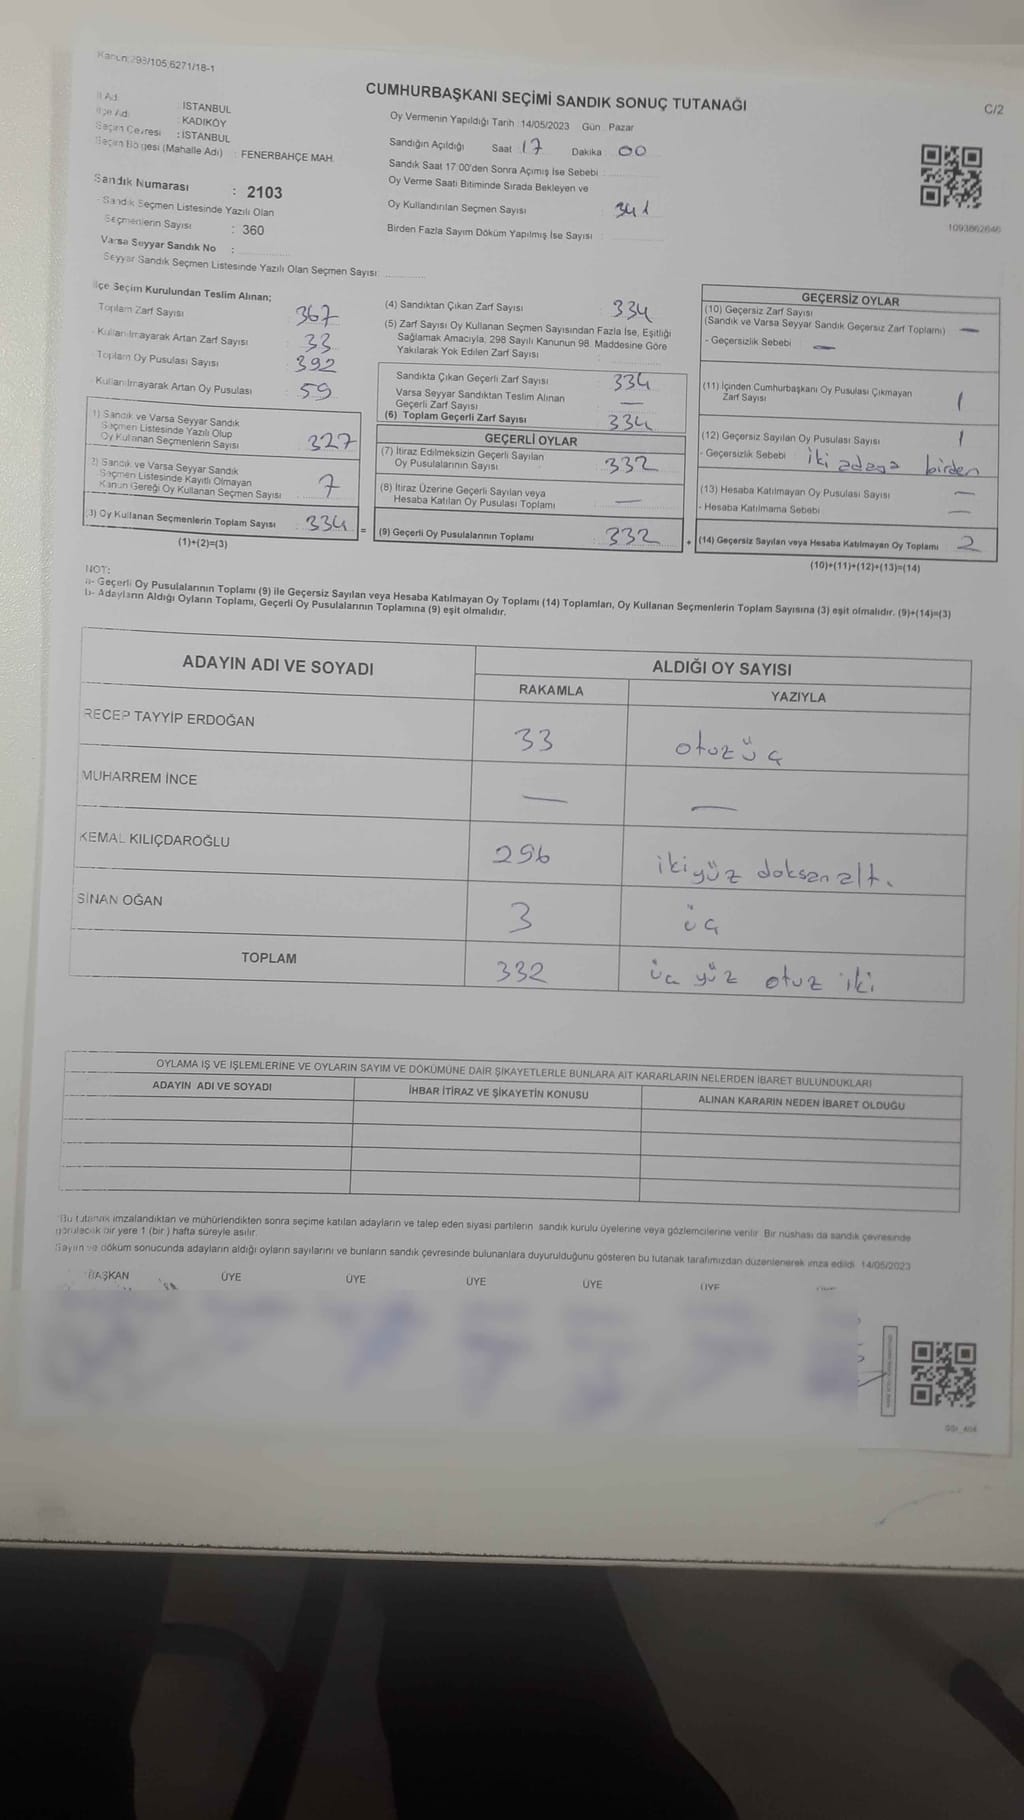 Kanun:298/105,6271/18-1
CUMHURBAŞKANI SEÇİMİ SANDIK SONUÇ TUTANAĞI
C/2
İl Adı : İSTANBUL
İlçe Adı : KADIKÖY
Seçim Çevresi : İSTANBUL
Seçim Bölgesi (Mahalle Adı) : FENERBAHÇE MAH.
Sandık Numarası : 2103
Sandık Seçmen Listesinde Yazılı Olan
Seçmenlerin Sayısı : 360
Varsa Seyyar Sandık No :
Seyyar Sandık Seçmen Listesinde Yazılı Olan Seçmen Sayısı:
Oy Vermenin Yapıldığı Tarih :14/05/2023 Gün : Pazar
Sandığın Açıldığı Saat 17 Dakika 00
Sandık Saat 17:00'den Sonra Açımış İse Sebebi :
Oy Verme Saati Bitiminde Sırada Bekleyen ve
Oy Kullandırılan Seçmen Sayısı : 341
Birden Fazla Sayım Döküm Yapılmış İse Sayısı :
1093862646
İlçe Seçim Kurulundan Teslim Alınan;
Toplam Zarf Sayısı : 367
Kullanılmayarak Artan Zarf Sayısı : 33
Toplam Oy Pusulası Sayısı : 392
Kullanılmayarak Artan Oy Pusulası : 59
1) Sandık ve Varsa Seyyar Sandık
Seçmen Listesinde Yazılı Olup
Oy Kullanan Seçmenlerin Sayısı : 327
2) Sandık ve Varsa Seyyar Sandık
Seçmen Listesinde Kayıtlı Olmayan
Kanun Gereği Oy Kullanan Seçmen Sayısı : 7
3) Oy Kullanan Seçmenlerin Toplam Sayısı : 334 =
(1)+(2)=(3)
(4) Sandıktan Çıkan Zarf Sayısı : 334
(5) Zarf Sayısı Oy Kullanan Seçmen Sayısından Fazla İse, Eşitliği
Sağlamak Amacıyla, 298 Sayılı Kanunun 98. Maddesine Göre
Yakılarak Yok Edilen Zarf Sayısı :
Sandıkta Çıkan Geçerli Zarf Sayısı : 334
Varsa Seyyar Sandıktan Teslim Alınan
Geçerli Zarf Sayısı : —
(6) Toplam Geçerli Zarf Sayısı : 334
GEÇERLİ OYLAR
(7) İtiraz Edilmeksizin Geçerli Sayılan
Oy Pusulalarının Sayısı : 332
(8) İtiraz Üzerine Geçerli Sayılan veya
Hesaba Katılan Oy Pusulası Toplamı : —
(9) Geçerli Oy Pusulalarının Toplamı : 332 +
GEÇERSİZ OYLAR
(10) Geçersiz Zarf Sayısı
(Sandık ve Varsa Seyyar Sandık Geçersiz Zarf Toplamı) —
- Geçersizlik Sebebi : —
(11) İçinden Cumhurbaşkanı Oy Pusulası Çıkmayan
Zarf Sayısı 1
(12) Geçersiz Sayılan Oy Pusulası Sayısı : 1
- Geçersizlik Sebebi : iki adaya birden
(13) Hesaba Katılmayan Oy Pusulası Sayısı : —
- Hesaba Katılmama Sebebi : —
(14) Geçersiz Sayılan veya Hesaba Katılmayan Oy Toplamı : 2
(10)+(11)+(12)+(13)=(14)
NOT:
a- Geçerli Oy Pusulalarının Toplamı (9) ile Geçersiz Sayılan veya Hesaba Katılmayan Oy Toplamı (14) Toplamları, Oy Kullanan Seçmenlerin Toplam Sayısına (3) eşit olmalıdır. (9)+(14)=(3)
b- Adayların Aldığı Oyların Toplamı, Geçerli Oy Pusulalarının Toplamına (9) eşit olmalıdır.
ADAYIN ADI VE SOYADI
ALDIĞI OY SAYISI
RAKAMLA YAZIYLA
RECEP TAYYİP ERDOĞAN 33 otuzüç
MUHARREM İNCE — —
KEMAL KILIÇDAROĞLU 296 ikiyüz doksan altı
SİNAN OĞAN 3 üç
TOPLAM 332 üç yüz otuz iki
OYLAMA İŞ VE İŞLEMLERİNE VE OYLARIN SAYIM VE DÖKÜMÜNE DAİR ŞİKAYETLERLE BUNLARA AİT KARARLARIN NELERDEN İBARET BULUNDUKLARI
ADAYIN ADI VE SOYADI İHBAR İTİRAZ VE ŞİKAYETİN KONUSU ALINAN KARARIN NEDEN İBARET OLDUĞU
*Bu tutanak imzalandıktan ve mühürlendikten sonra seçime katılan adayların ve talep eden siyasi partilerin sandık kurulu üyelerine veya gözlemcilerine verilir. Bir nüshası da sandık çevresinde
görülecek bir yere 1 (bir) hafta süreyle asılır.
Sayım ve döküm sonucunda adayların aldığı oyların sayılarını ve bunların sandık çevresinde bulunanlara duyurulduğunu gösteren bu tutanak tarafımızdan düzenlenerek imza edildi. 14/05/2023
BAŞKAN ÜYE ÜYE ÜYE ÜYE ÜYE